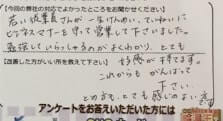 今回の弊社の対応でよかったところをお聞かせください
若い従業員さんが一生けんめい、ていねいに
ビジネスマナーを守って営業して下さいました。
勉強していらっしゃるのがよくわかり、とても
好感が持てます。
【改善した方がいい所を教えて下さい】
これからもがんばって
下さい。
とめても、とても感じのよい方
です
アンケートをお答えいただいた方には